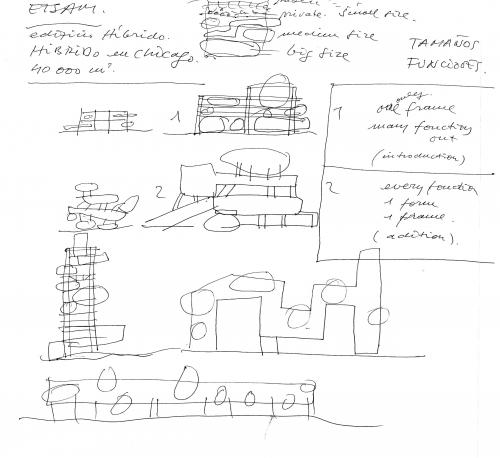 ETSAM.
private. Small size.
edificio Híbrido.
medium size
HíBRIDO en Chicago.
big size
40 000 m².
TAMAÑOS
FUNCIONES.
1
1
only
one frame
many fonction
out
(introduction)
2
2
every fonction
1 form
1 frame.
(adition).